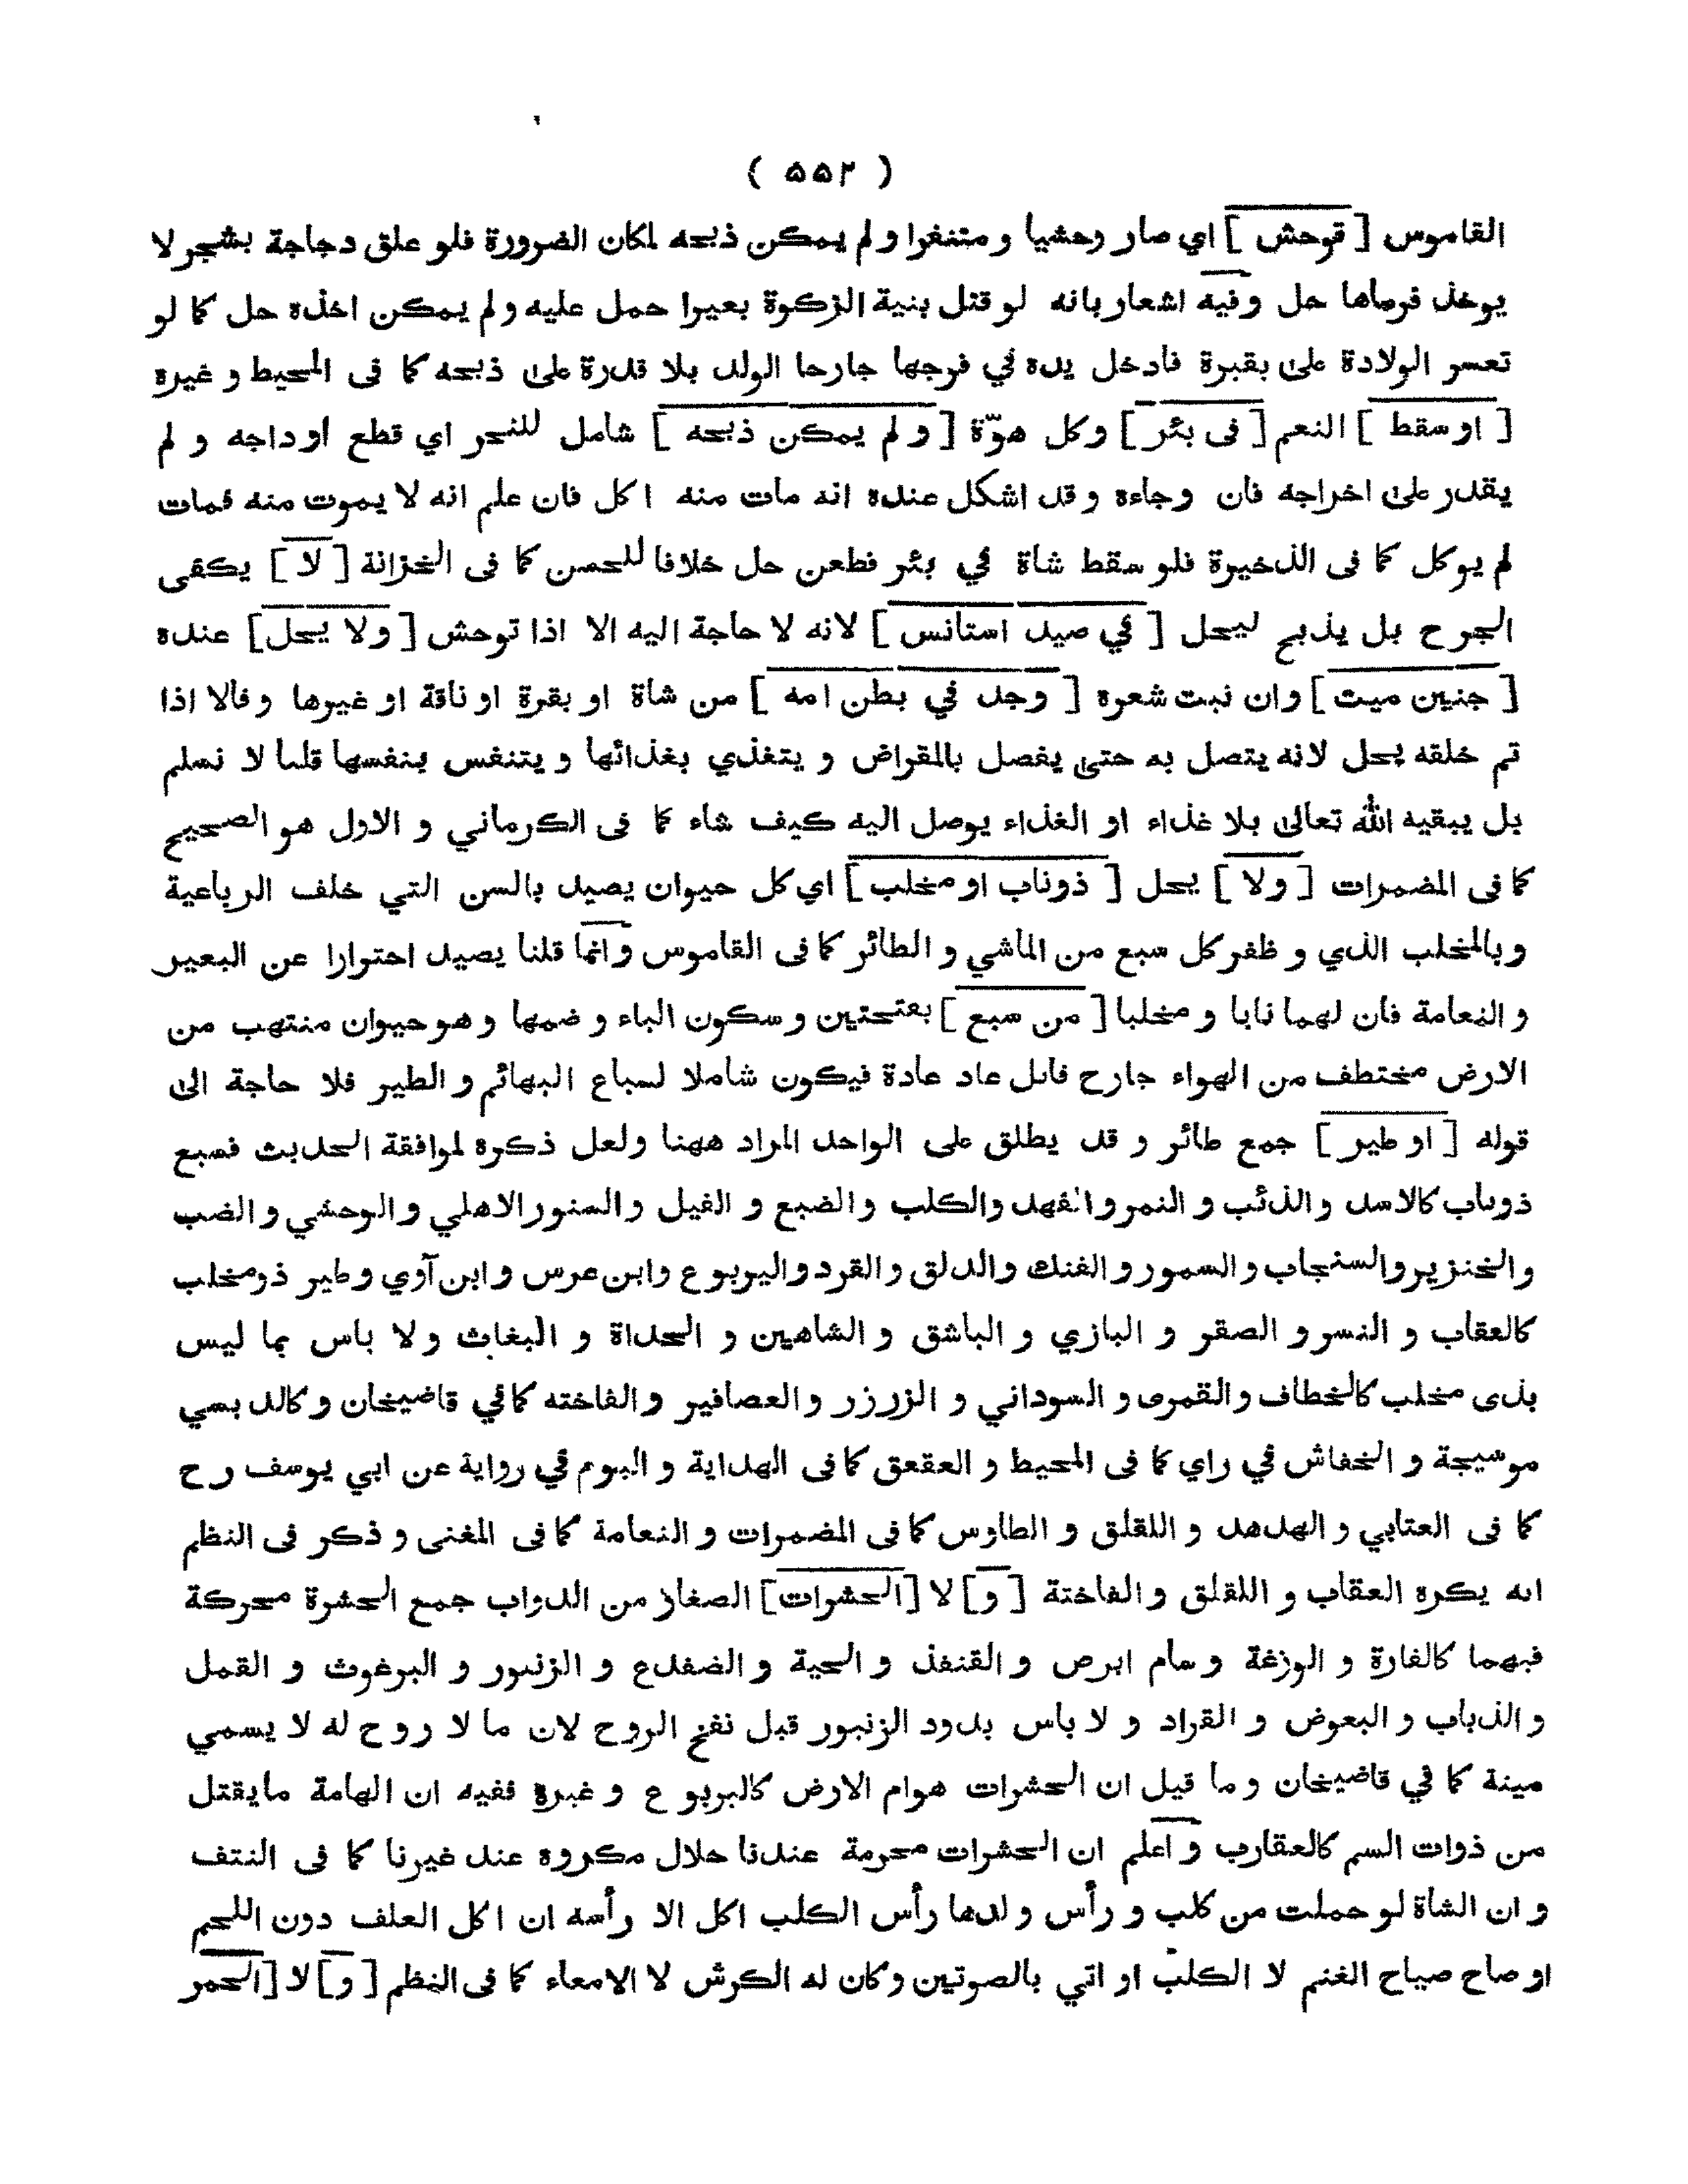 ( ۵۵۲ )
القاموس [ توحش ] اي صار وحشيا و متنفرا و لم يمكن ذبحه لمكان الضرورة فلو علق دجاجة بشجر لا
يوخذ فرماها حل وفيه اشعار بانه لو قتل بنية الزكوة بعيرا حمل عليه و لم يمكن اخذه حل كما لو
تعسر الولادة على بقرة فادخل يده في فرجها جارحا الولد بلا قدرة على ذبحه كما فى المحيط و غيره
[ او سقط ] النعم [ فى بئر ] وكل هوّة [ و لم يمكن ذبحه ] شامل للنحر اي قطع اوداجه و لم
يقدر على اخراجه فان وجاءه و قد اشكل عنده انه مات منه اكل فان علم انه لا يموت منه فمات
لم يوكل كما فى الذخيرة فلو سقط شاة في بئر فطعن حل خلافا للحسن كما فى الخزانة [ لا ] يكفى
الجرح بل يذبح ليحل [ في صيد استانس ] لانه لا حاجة اليه الا اذا توحش [ ولا يحل ] عنده
[ جنين ميت ] و ان نبت شعره [ وجد في بطن امه ] من شاة او بقرة او ناقة او غيرها وقالا اذا
تم خلقه يحل لانه يتصل به حتى يفصل بالمقراض و يتغذي بغذائها و يتنفس بنفسها قلنا لا نسلم
بل يبقيه الله تعالى بلا غذاء او الغذاء يوصل اليه كيف شاء كما فى الكرماني و الاول هو الصحيح
كما فى المضمرات [ ولا ] يحل [ ذوناب او مخلب ] اي كل حيوان يصيد بالسن التي خلف الرباعية
وبالمخلب الذي و ظفر كل سبع من الماشي و الطائر كما فى القاموس وانما قلنا يصيد احترازا عن البعير
و النعامة فان لهما نابا و مخلبا [ من سبع ] بفتحتين و سكون الباء و ضمها و هو حيوان منتهب من
الارض مختطف من الهواء جارح قاتل عاد عادة فيكون شاملا لسباع البهائم و الطير فلا حاجة الى
قوله [ او طير ] جمع طائر و قد يطلق على الواحد المراد ههنا ولعل ذكره لموافقة الحديث فسبع
ذوناب كالاسد والذئب و النمر و الفهد والكلب والضبع و الفيل والسنور الاهلي و الوحشي و الضب
والخنزير والسنجاب و السمور و الفنك والدلق و القرد واليربوع وابن عرس و ابن آوي و طير ذومخلب
كالعقاب و النسر و الصقر و البازي و الباشق و الشاهين و الحداة و البغاث ولا باس بما ليس
بذى مخلب كالخطاف والقمرى و السوداني و الزرزر والعصافير والفاخته كما في قاضيخان و كالدبسي
موسيجة و الخفاش في راي كما فى المحيط و العقعق كما فى الهداية و البوم في رواية عن ابي يوسف رح
كما فى العتابي و الهدهد و اللقلق و الطاوس كما فى المضمرات و النعامة كما فى المغنى و ذكر فى النظم
انه يكره العقاب و اللقلق و الفاختة [ و] لا [الحشرات] الصغار من الدواب جمع الحشرة محركة
فيهما كالفارة و الوزغة و سام ابرص و القنفذ و الحية و الضفدع و الزنبور و البرغوث و القمل
و الذباب و البعوض و القراد و لا باس بدود الزنبور قبل نفخ الروح لان ما لا روح له لا يسمي
ميتة كما في قاضيخان و ما قيل ان الحشرات هوام الارض كاليربوع و غيره ففيه ان الهامة مايقتل
من ذوات السم كالعقارب و اعلم ان الحشرات محرمة عندنا حلال مكروه عند غيرنا كما فى النتف
و ان الشاة لو حملت من كلب و رأس ولدها رأس الكلب اكل الا رأسه ان اكل العلف دون اللحم
او صاح صياح الغنم لا الكلب او اتي بالصوتين وكان له الكرش لا الامعاء كما فى النظم [ و] لا [الحمر